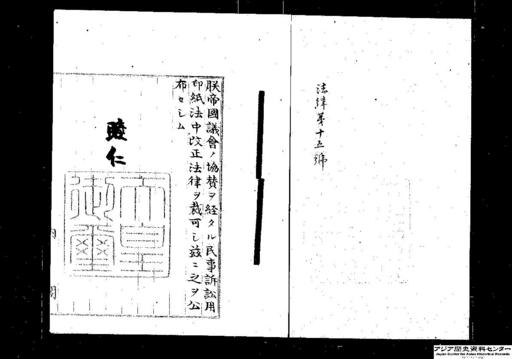 法律第十五號
朕帝國議會ノ協賛ヲ経タル民事訴訟用
印紙法中改正法律ヲ裁可シ茲ニ之ヲ公
布セシム
睦仁
天皇
御璽
内
閣
アジア歴史資料センター
Japan Center for Asian Historical Records